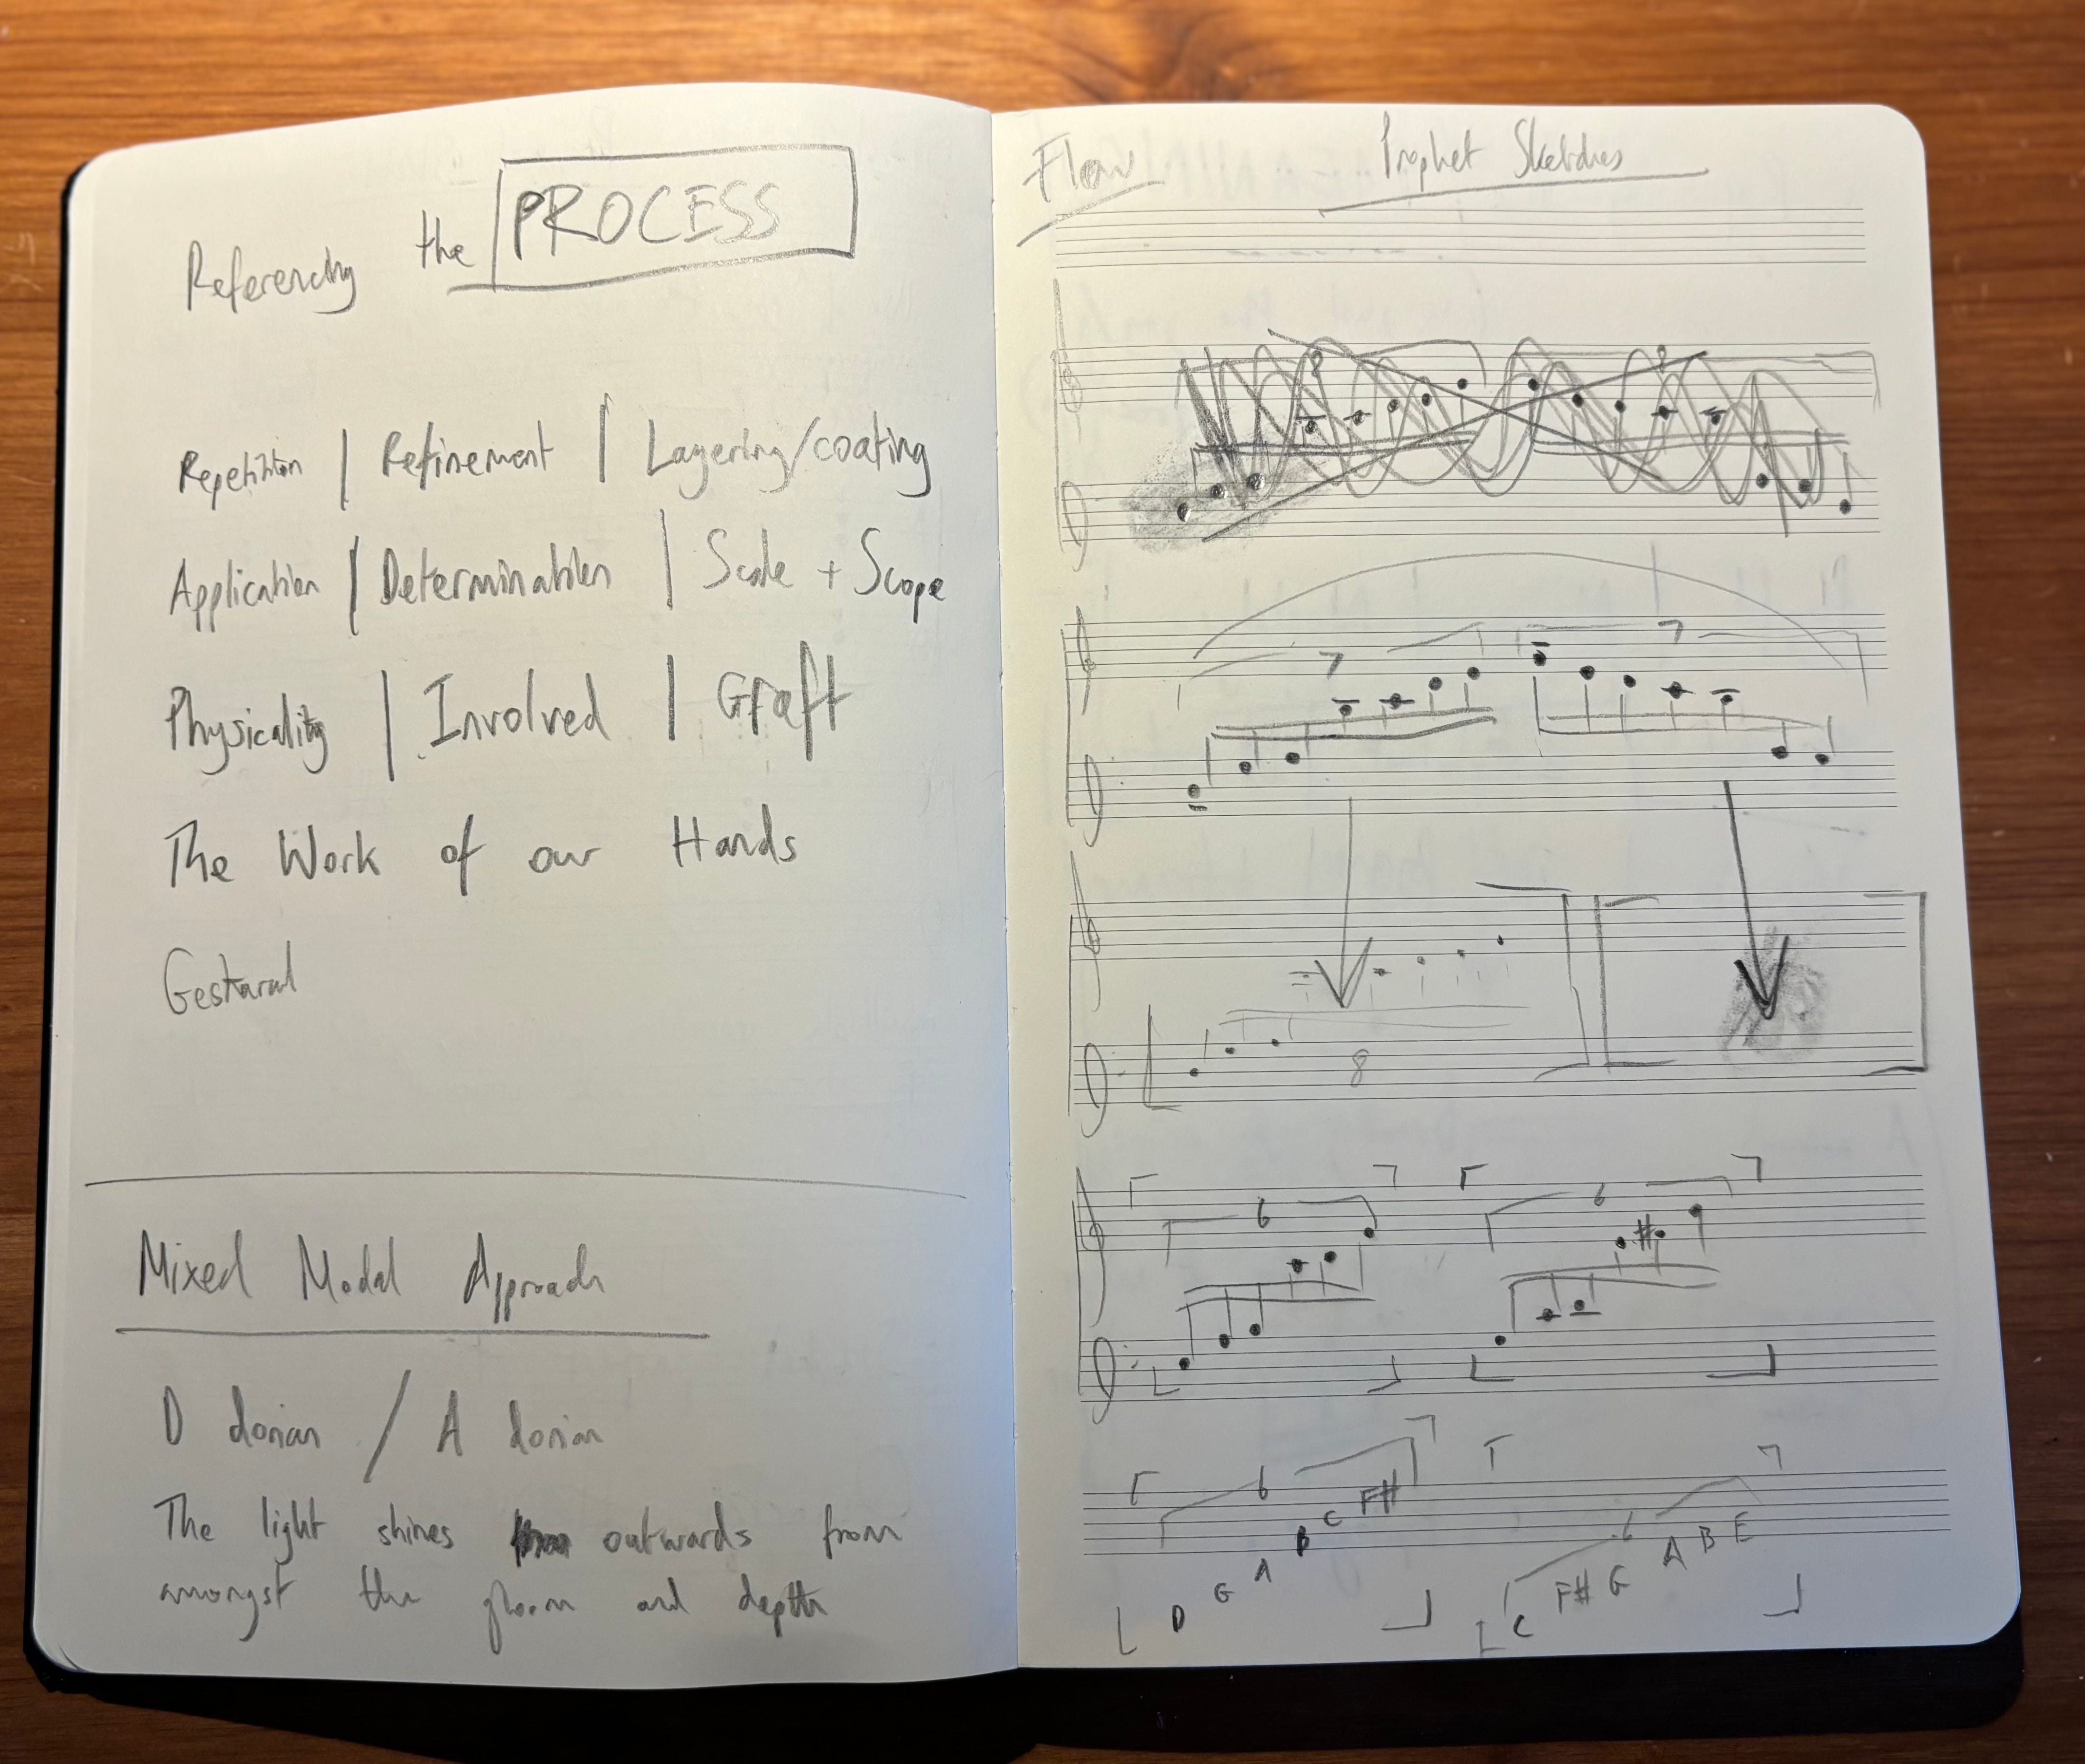 Referencing the PROCESS
Repetition | Refinement | Layering/coating
Application | Determination | Scale + Scope
Physicality | Involved | Graft
The Work of our Hands
Gestural
Mixed Modal Approach
D dorian / A dorian
The light shines outwards from
amongst the gloom and depth
Flow Prophet Sketches
8 8
7 7
8
6 6
#
6 6
D G A B C F# C F# G A B E